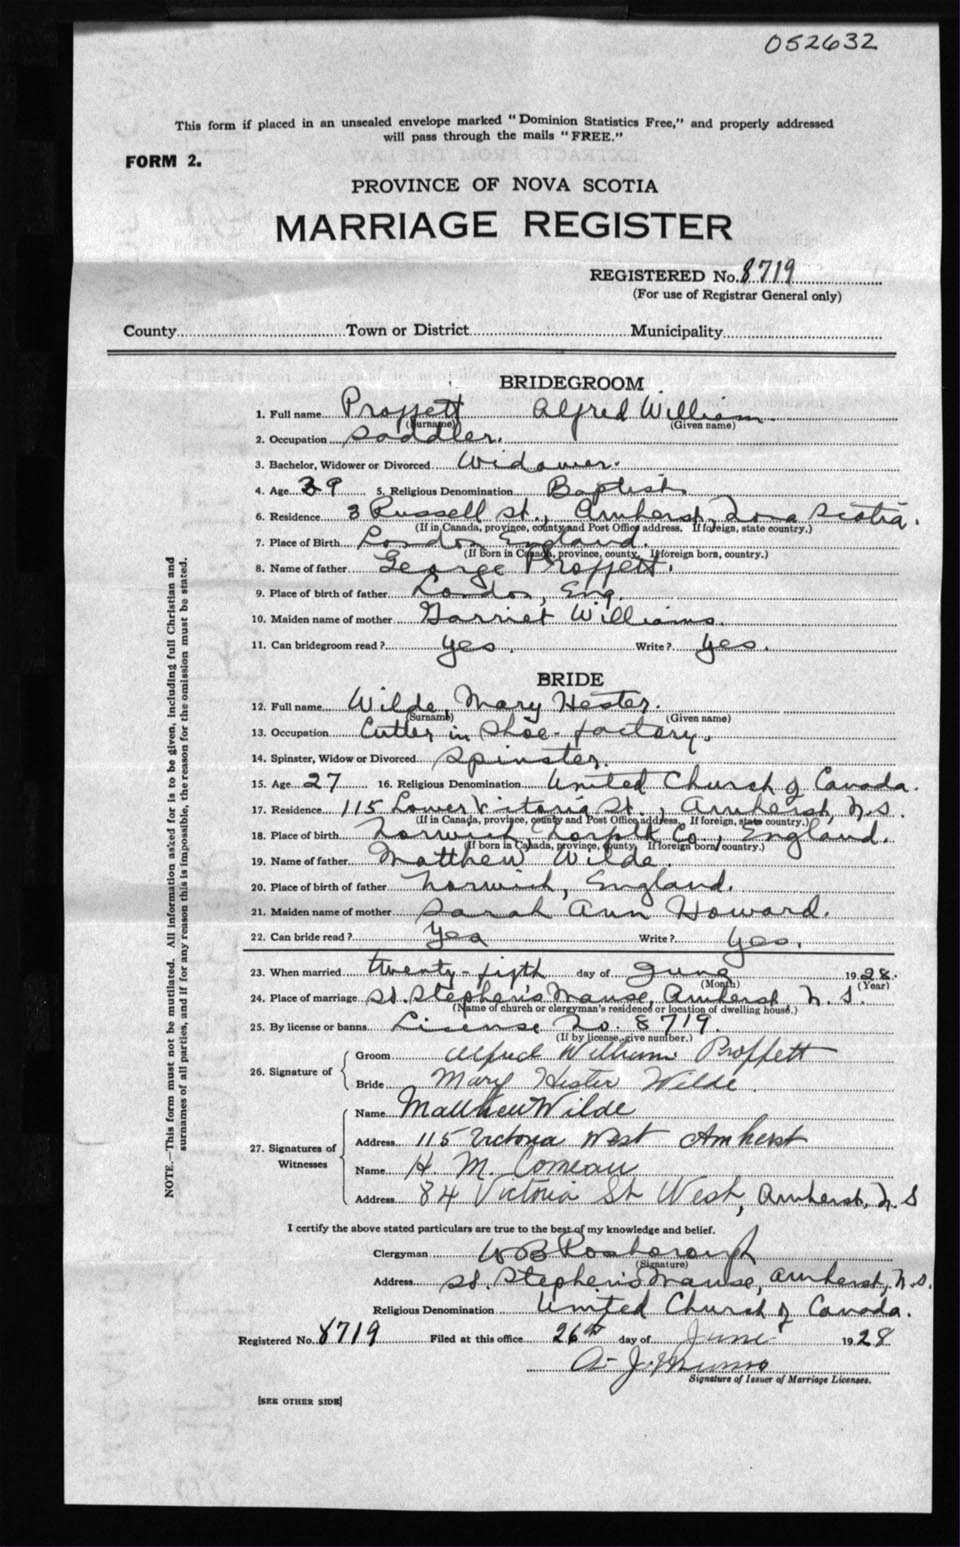 052632
This form if placed in an unsealed envelope marked "Dominion Statistics Free," and properly addressed
will pass through the mails "FREE."
FORM 2.
PROVINCE OF NOVA SCOTIA
MARRIAGE REGISTER
REGISTERED No. 8719
(For use of Registrar General only)
County Town or District Municipality
BRIDEGROOM
1. Full name Proffett Alfred William
(Surname) (Given name)
2. Occupation Saddler.
3. Bachelor, Widower or Divorced Widower.
4. Age 39 5. Religious Denomination Baptist.
6. Residence 3 Russell St., Amherst, Nova Scotia.
(If in Canada, province, county and Post Office address. If foreign, state country.)
7. Place of Birth London, England.
(If born in Canada, province, county. If foreign born, country.)
8. Name of father George Proffett.
9. Place of birth of father London, Eng.
10. Maiden name of mother Harriet Williams.
11. Can bridegroom read? Yes. Write? Yes.
BRIDE
12. Full name Wilde, Mary Hester.
(Surname) (Given name)
13. Occupation Cutter in Shoe-factory.
14. Spinster, Widow or Divorced Spinster.
15. Age 27 16. Religious Denomination United Church of Canada.
17. Residence 115 Lower Victoria St., Amherst, N.S.
(If in Canada, province, county and Post Office address. If foreign, state country.)
18. Place of birth Norwich, Norfolk Co., England.
(If born in Canada, province, county. If foreign born, country.)
19. Name of father Matthew Wilde.
20. Place of birth of father Norwich, England.
21. Maiden name of mother Sarah Ann Howard.
22. Can bride read? Yes Write? Yes.
23. When married twenty-fifth day of June 1928.
(Month) (Year)
24. Place of marriage St. Stephen's Manse, Amherst, N.S.
(Name of church or clergyman's residence or location of dwelling house.)
25. By license or banns License No. 8719.
(If by license, give number.)
26. Signature of
Groom Alfred William Proffett
Bride Mary Hester Wilde
27. Signatures of Witnesses
Name Matthew Wilde
Address 115 Victoria West Amherst
Name H. M. Comeau
Address 84 Victoria St West, Amherst, N.S
I certify the above stated particulars are true to the best of my knowledge and belief.
Clergyman W B Rosborough
(Signature)
Address St. Stephen's Manse, Amherst, N.S.
Religious Denomination United Church of Canada.
Registered No. 8719 Filed at this office 26th day of June 1928
A. J. Munro
Signature of Issuer of Marriage Licenses.
[SEE OTHER SIDE]
NOTE.—This form must not be mutilated. All information asked for is to be given, including full Christian and
surnames of all parties, and if for any reason this is impossible, the reason for the omission must be stated.